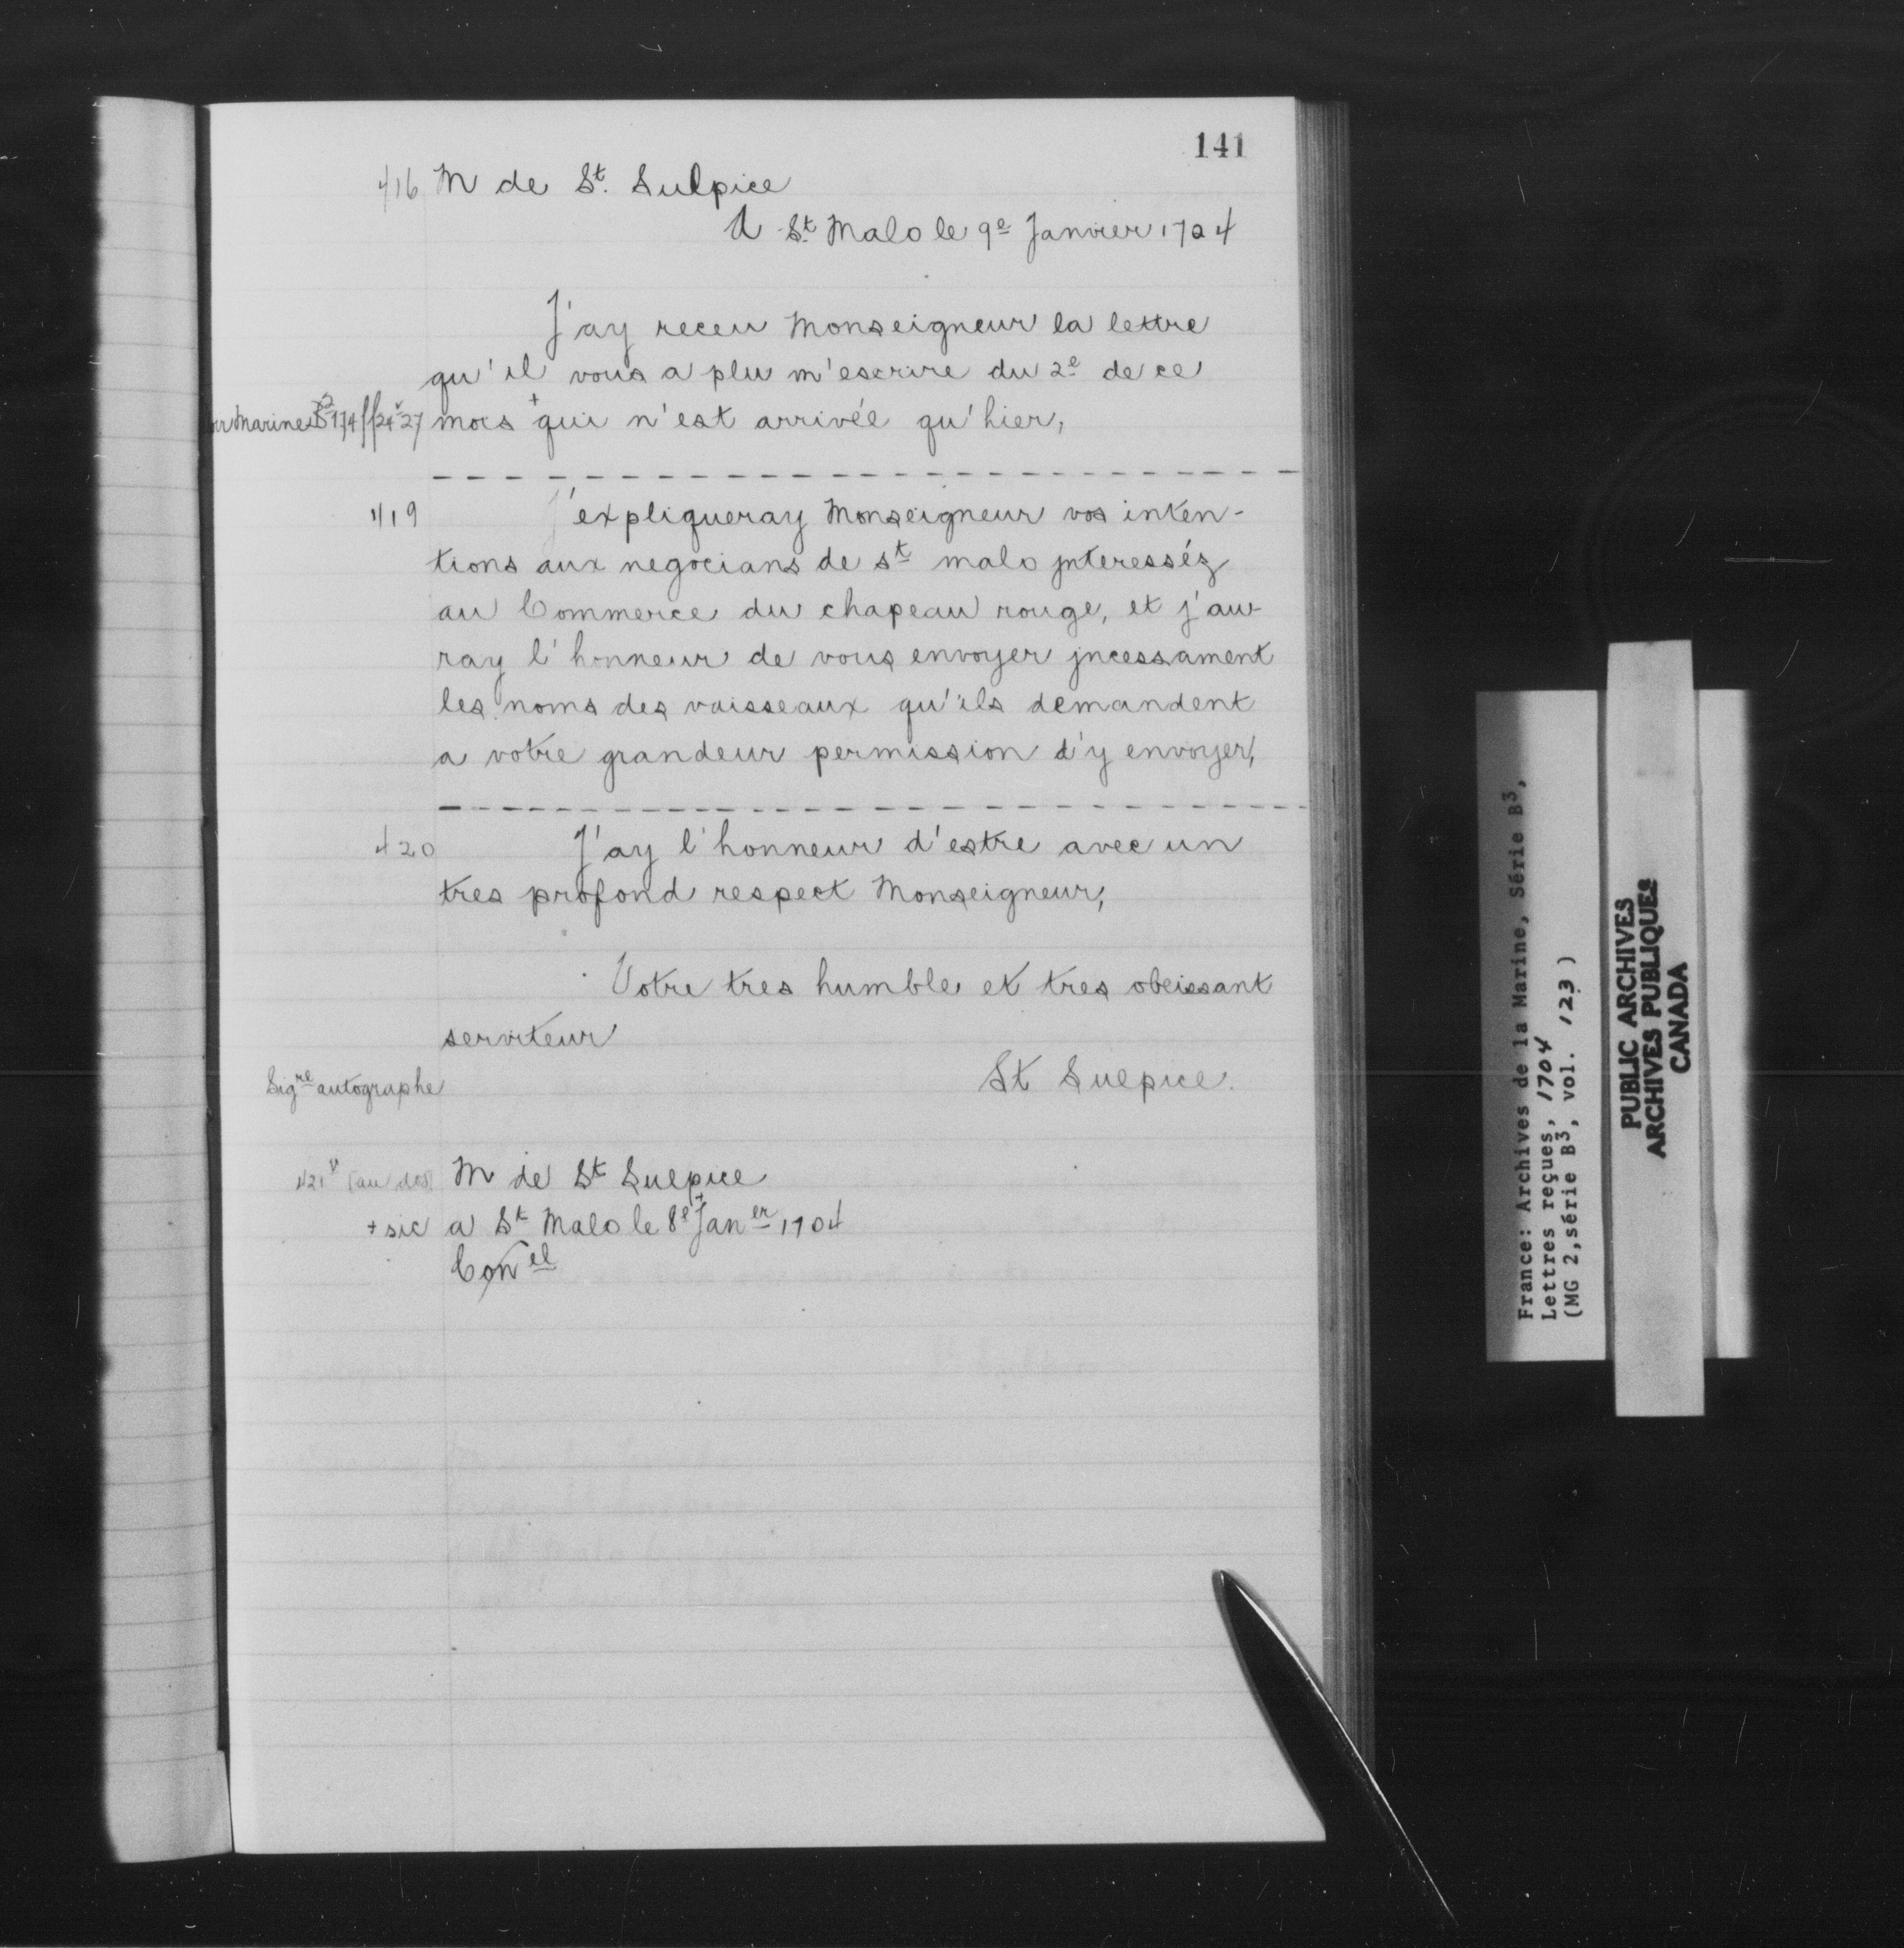 141
416 M de St. Sulpice
A St Malo le 9e Janvier 1704
J'ay receu Monseigneur la lettre
qu'il vous a plu m'escrire du 2e de ce
Marine B2 174 ff 24v 27 mois + qui n'est arrivée qu'hier,
419 J'expliqueray Monseigneur vos inten-
tions aux negocians de st malo jnteresséz
au Commerce du chapeau rouge, et j'au-
ray l'honneur de vous envoyer jncessament
les noms des vaisseaux qu'ils demandent
a votre grandeur permission d'y envoyer,
420 J'ay l'honneur d'estre avec un
tres profond respect Monseigneur,
Votre tres humble et tres obeissant
serviteur
Sigre autographe St Sulpice.
421v (au dos) M de St Sulpice
+ sic a St Malo le 8e + Janer 1704
Conel
France: Archives de la Marine, Série B3,
Lettres reçues, 1704
(MG 2,série B3, vol. 123)
PUBLIC ARCHIVES
ARCHIVES PUBLIQUES
CANADA